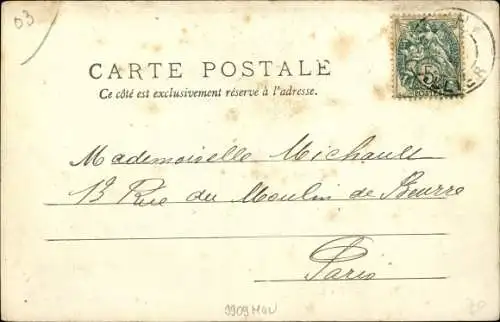 03
CARTE POSTALE
Ce côté est exclusivement réservé à l'adresse.
5
POSTES
Mademoiselle Michault
13 Rue du Moulin de Beurre
Paris